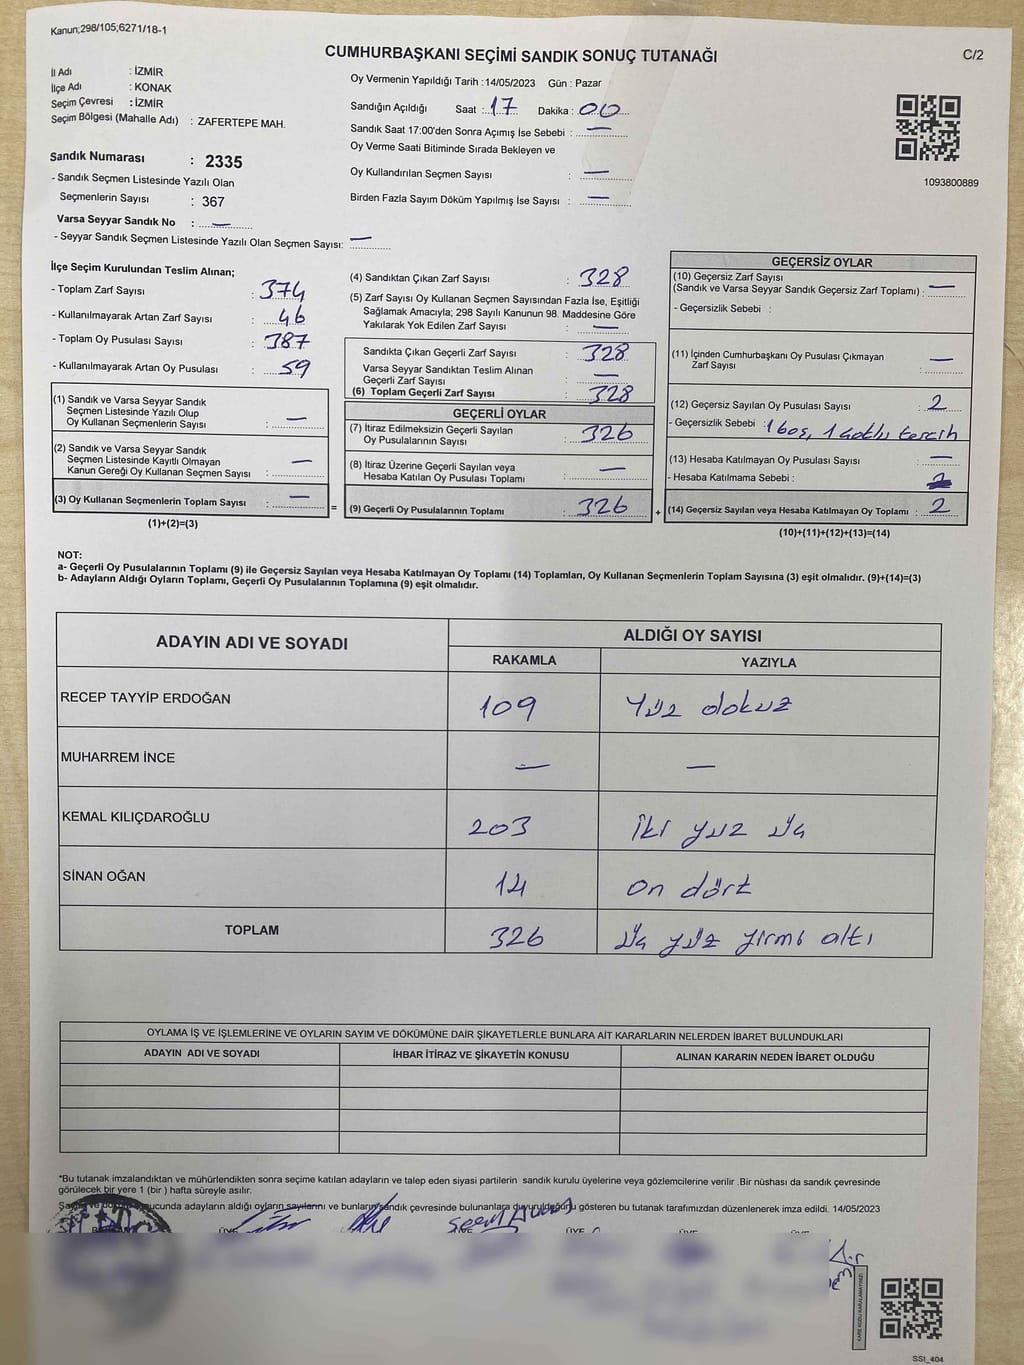 Kanun;298/105;6271/18-1
CUMHURBAŞKANI SEÇİMİ SANDIK SONUÇ TUTANAĞI
C/2
İl Adı : İZMİR
İlçe Adı : KONAK
Seçim Çevresi : İZMİR
Seçim Bölgesi (Mahalle Adı) : ZAFERTEPE MAH.
Oy Vermenin Yapıldığı Tarih : 14/05/2023 Gün : Pazar
Sandığın Açıldığı Saat : 17 Dakika : 00
Sandık Saat 17:00'den Sonra Açımış İse Sebebi : —
Oy Verme Saati Bitiminde Sırada Bekleyen ve
Oy Kullandırılan Seçmen Sayısı : —
Birden Fazla Sayım Döküm Yapılmış İse Sayısı : —
1093800889
Sandık Numarası : 2335
- Sandık Seçmen Listesinde Yazılı Olan
Seçmenlerin Sayısı : 367
Varsa Seyyar Sandık No : —
- Seyyar Sandık Seçmen Listesinde Yazılı Olan Seçmen Sayısı: —
İlçe Seçim Kurulundan Teslim Alınan;
- Toplam Zarf Sayısı : 374
- Kullanılmayarak Artan Zarf Sayısı : 46
- Toplam Oy Pusulası Sayısı : 387
- Kullanılmayarak Artan Oy Pusulası : 59
(1) Sandık ve Varsa Seyyar Sandık
Seçmen Listesinde Yazılı Olup
Oy Kullanan Seçmenlerin Sayısı : —
(2) Sandık ve Varsa Seyyar Sandık
Seçmen Listesinde Kayıtlı Olmayan
Kanun Gereği Oy Kullanan Seçmen Sayısı : —
(3) Oy Kullanan Seçmenlerin Toplam Sayısı : —
(1)+(2)=(3)
(4) Sandıktan Çıkan Zarf Sayısı : 328
(5) Zarf Sayısı Oy Kullanan Seçmen Sayısından Fazla İse, Eşitliği
Sağlamak Amacıyla; 298 Sayılı Kanunun 98. Maddesine Göre
Yakılarak Yok Edilen Zarf Sayısı : —
Sandıkta Çıkan Geçerli Zarf Sayısı : 328
Varsa Seyyar Sandıktan Teslim Alınan
Geçerli Zarf Sayısı : —
(6) Toplam Geçerli Zarf Sayısı : 328
GEÇERLİ OYLAR
(7) İtiraz Edilmeksizin Geçerli Sayılan
Oy Pusulalarının Sayısı : 326
(8) İtiraz Üzerine Geçerli Sayılan veya
Hesaba Katılan Oy Pusulası Toplamı : —
= (9) Geçerli Oy Pusulalarının Toplamı : 326
GEÇERSİZ OYLAR
(10) Geçersiz Zarf Sayısı
(Sandık ve Varsa Seyyar Sandık Geçersiz Zarf Toplamı) : —
- Geçersizlik Sebebi :
(11) İçinden Cumhurbaşkanı Oy Pusulası Çıkmayan
Zarf Sayısı : —
(12) Geçersiz Sayılan Oy Pusulası Sayısı : 2
- Geçersizlik Sebebi : 1 boş, 1 tercih
(13) Hesaba Katılmayan Oy Pusulası Sayısı : —
- Hesaba Katılmama Sebebi :
+ (14) Geçersiz Sayılan veya Hesaba Katılmayan Oy Toplamı : 2
(10)+(11)+(12)+(13)=(14)
NOT:
a- Geçerli Oy Pusulalarının Toplamı (9) ile Geçersiz Sayılan veya Hesaba Katılmayan Oy Toplamı (14) Toplamları, Oy Kullanan Seçmenlerin Toplam Sayısına (3) eşit olmalıdır. (9)+(14)=(3)
b- Adayların Aldığı Oyların Toplamı, Geçerli Oy Pusulalarının Toplamına (9) eşit olmalıdır.
ADAYIN ADI VE SOYADI ALDIĞI OY SAYISI
RAKAMLA YAZIYLA
RECEP TAYYİP ERDOĞAN 109 Yüz dokuz
MUHARREM İNCE — —
KEMAL KILIÇDAROĞLU 203 İki yüz üç
SİNAN OĞAN 14 on dört
TOPLAM 326 Üç yüz yirmi altı
OYLAMA İŞ VE İŞLEMLERİNE VE OYLARIN SAYIM VE DÖKÜMÜNE DAİR ŞİKAYETLERLE BUNLARA AİT KARARLARIN NELERDEN İBARET BULUNDUKLARI
ADAYIN ADI VE SOYADI İHBAR İTİRAZ VE ŞİKAYETİN KONUSU ALINAN KARARIN NEDEN İBARET OLDUĞU
*Bu tutanak imzalandıktan ve mühürlendikten sonra seçime katılan adayların ve talep eden siyasi partilerin sandık kurulu üyelerine veya gözlemcilerine verilir .Bir nüshası da sandık çevresinde
görülecek bir yere 1 (bir ) hafta süreyle asılır.
ucunda adayların aldığı oyların sayılarını ve bunların sandık çevresinde bulunanlara duyurulduğunu gösteren bu tutanak tarafımızdan düzenlenerek imza edildi. 14/05/2023
ÜYE ÜYE ÜYE ÜYE
KARE KODU KARALAMAYINIZ!
SSI_404